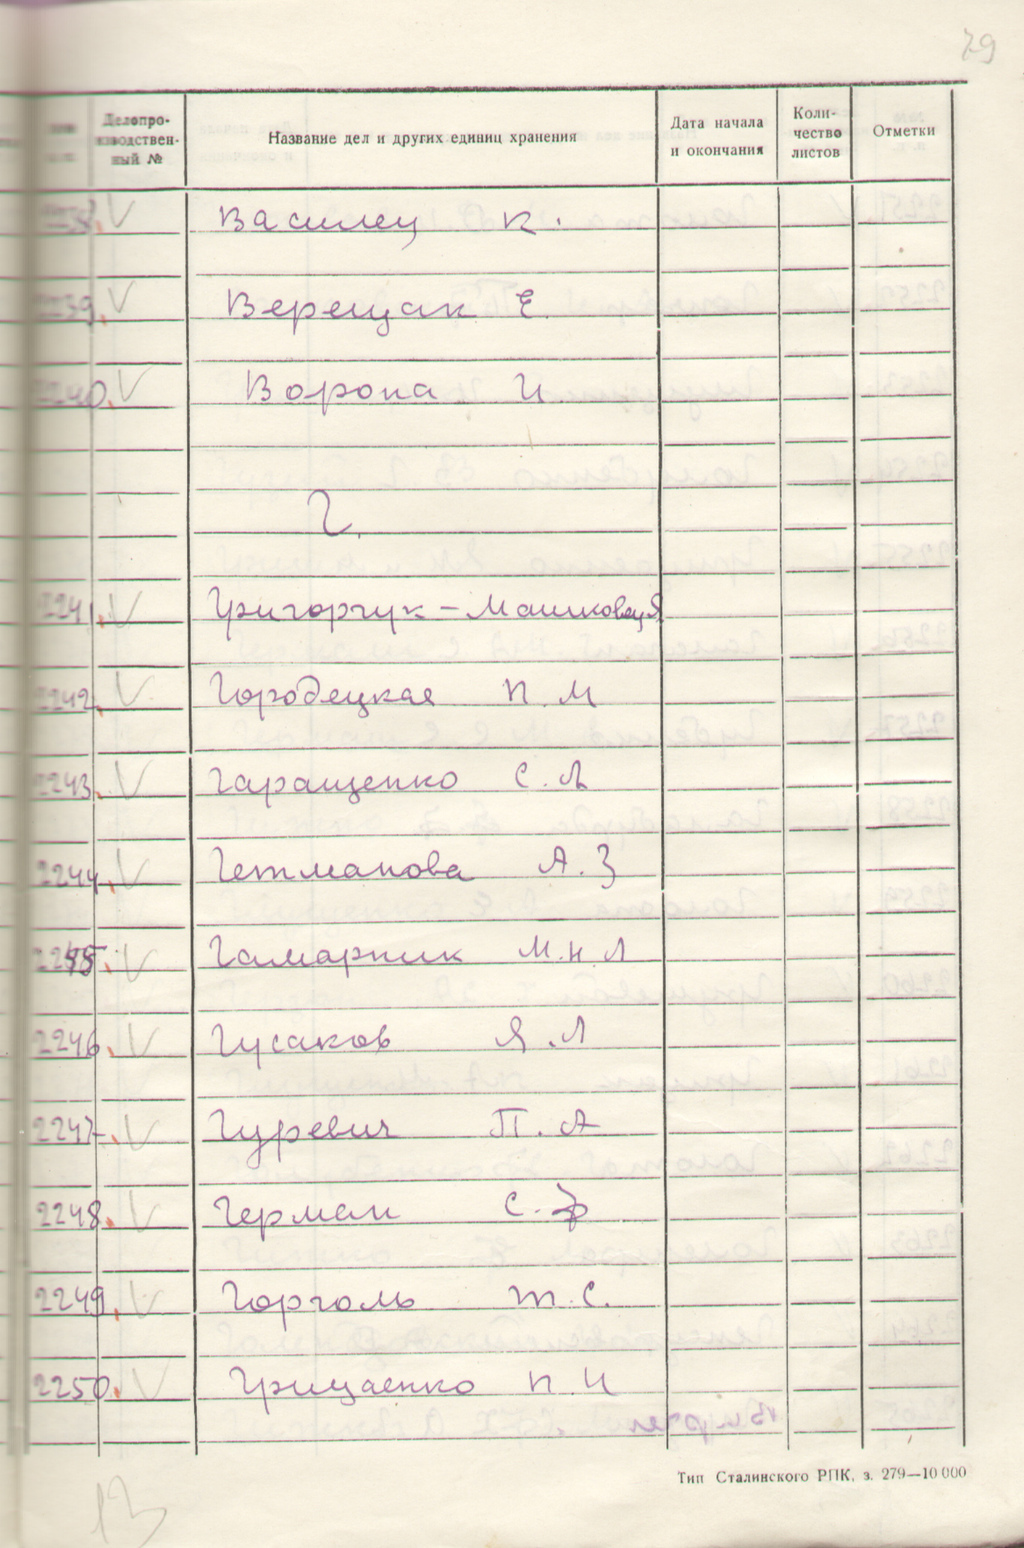 79
Делопроизводственный №
Название дел и других единиц хранения
Дата начала и окончания
Количество листов
Отметки
2238. Василец К.
2239. Верещак Е.
2240. Ворона И
Г.
2241. Григорчук-Машковец Я
2242. Городецкая П М
2243. Гаращенко С. Л
2244. Гетманова А. З
2245. Гамарник М. н Л
2246. Гусаков Я. Л
2247. Гуревич П. А
2248. Герман С. Ф
2249. Горголь Т. С.
2250. Грицаенко П. И
Тип Сталинского РПК, з. 279—10 000
13